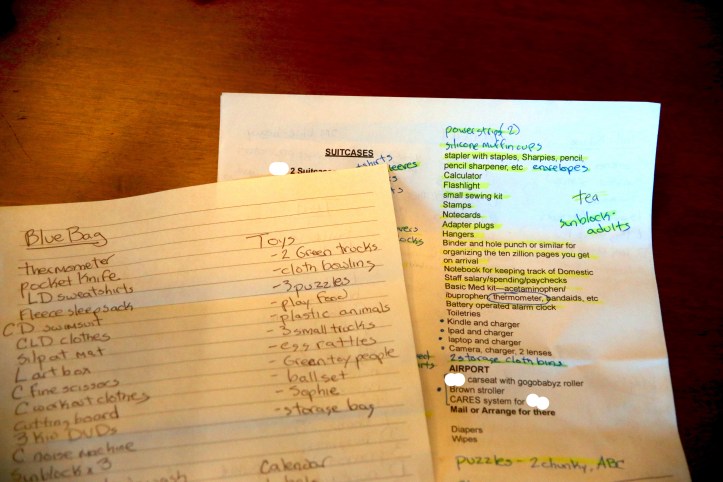 Blue Bag
thermometer
pocket knife
LD sweatshirts
Fleece sleepsack
C'D swimsuit
CLD clothes
Silpat mat
L art box
C fine scissors
C workout clothes
cutting board
3 kid DVDs
C noise machine
sunblock x 3
Toys
- 2 Green trucks
- cloth bowling
- 3 puzzles
- play food
- plastic animals
- 3 small trucks
- egg rattles
- Green toy people
ball set
- Sophie
- storage bag
Calendar
SUITCASES
2 Suitcases
tshirts
power strips (2)
silicone muffin cups
stapler with staples, Sharpies, pencil,
pencil sharpener, etc envelopes
Calculator
Flashlight
small sewing kit
Stamps
Notecards
Adapter plugs
Hangers
Binder and hole punch or similar for
organizing the ten zillion pages you get
on arrival
Notebook for keeping track of Domestic
Staff salary/spending/paychecks
Basic Med kit—acetaminophen/
ibuprophen, thermometer, bandaids, etc
Battery operated alarm clock
Toiletries
Kindle and charger
Ipad and charger
laptop and charger
Camera, charger, 2 lenses
2 storage cloth bins
AIRPORT
carseat with gogobabyz roller
Brown stroller
CARES system for
Mail or Arrange for there
Diapers
Wipes
puzzles - 2 chunky, ABC
tea
sunblock-
adults